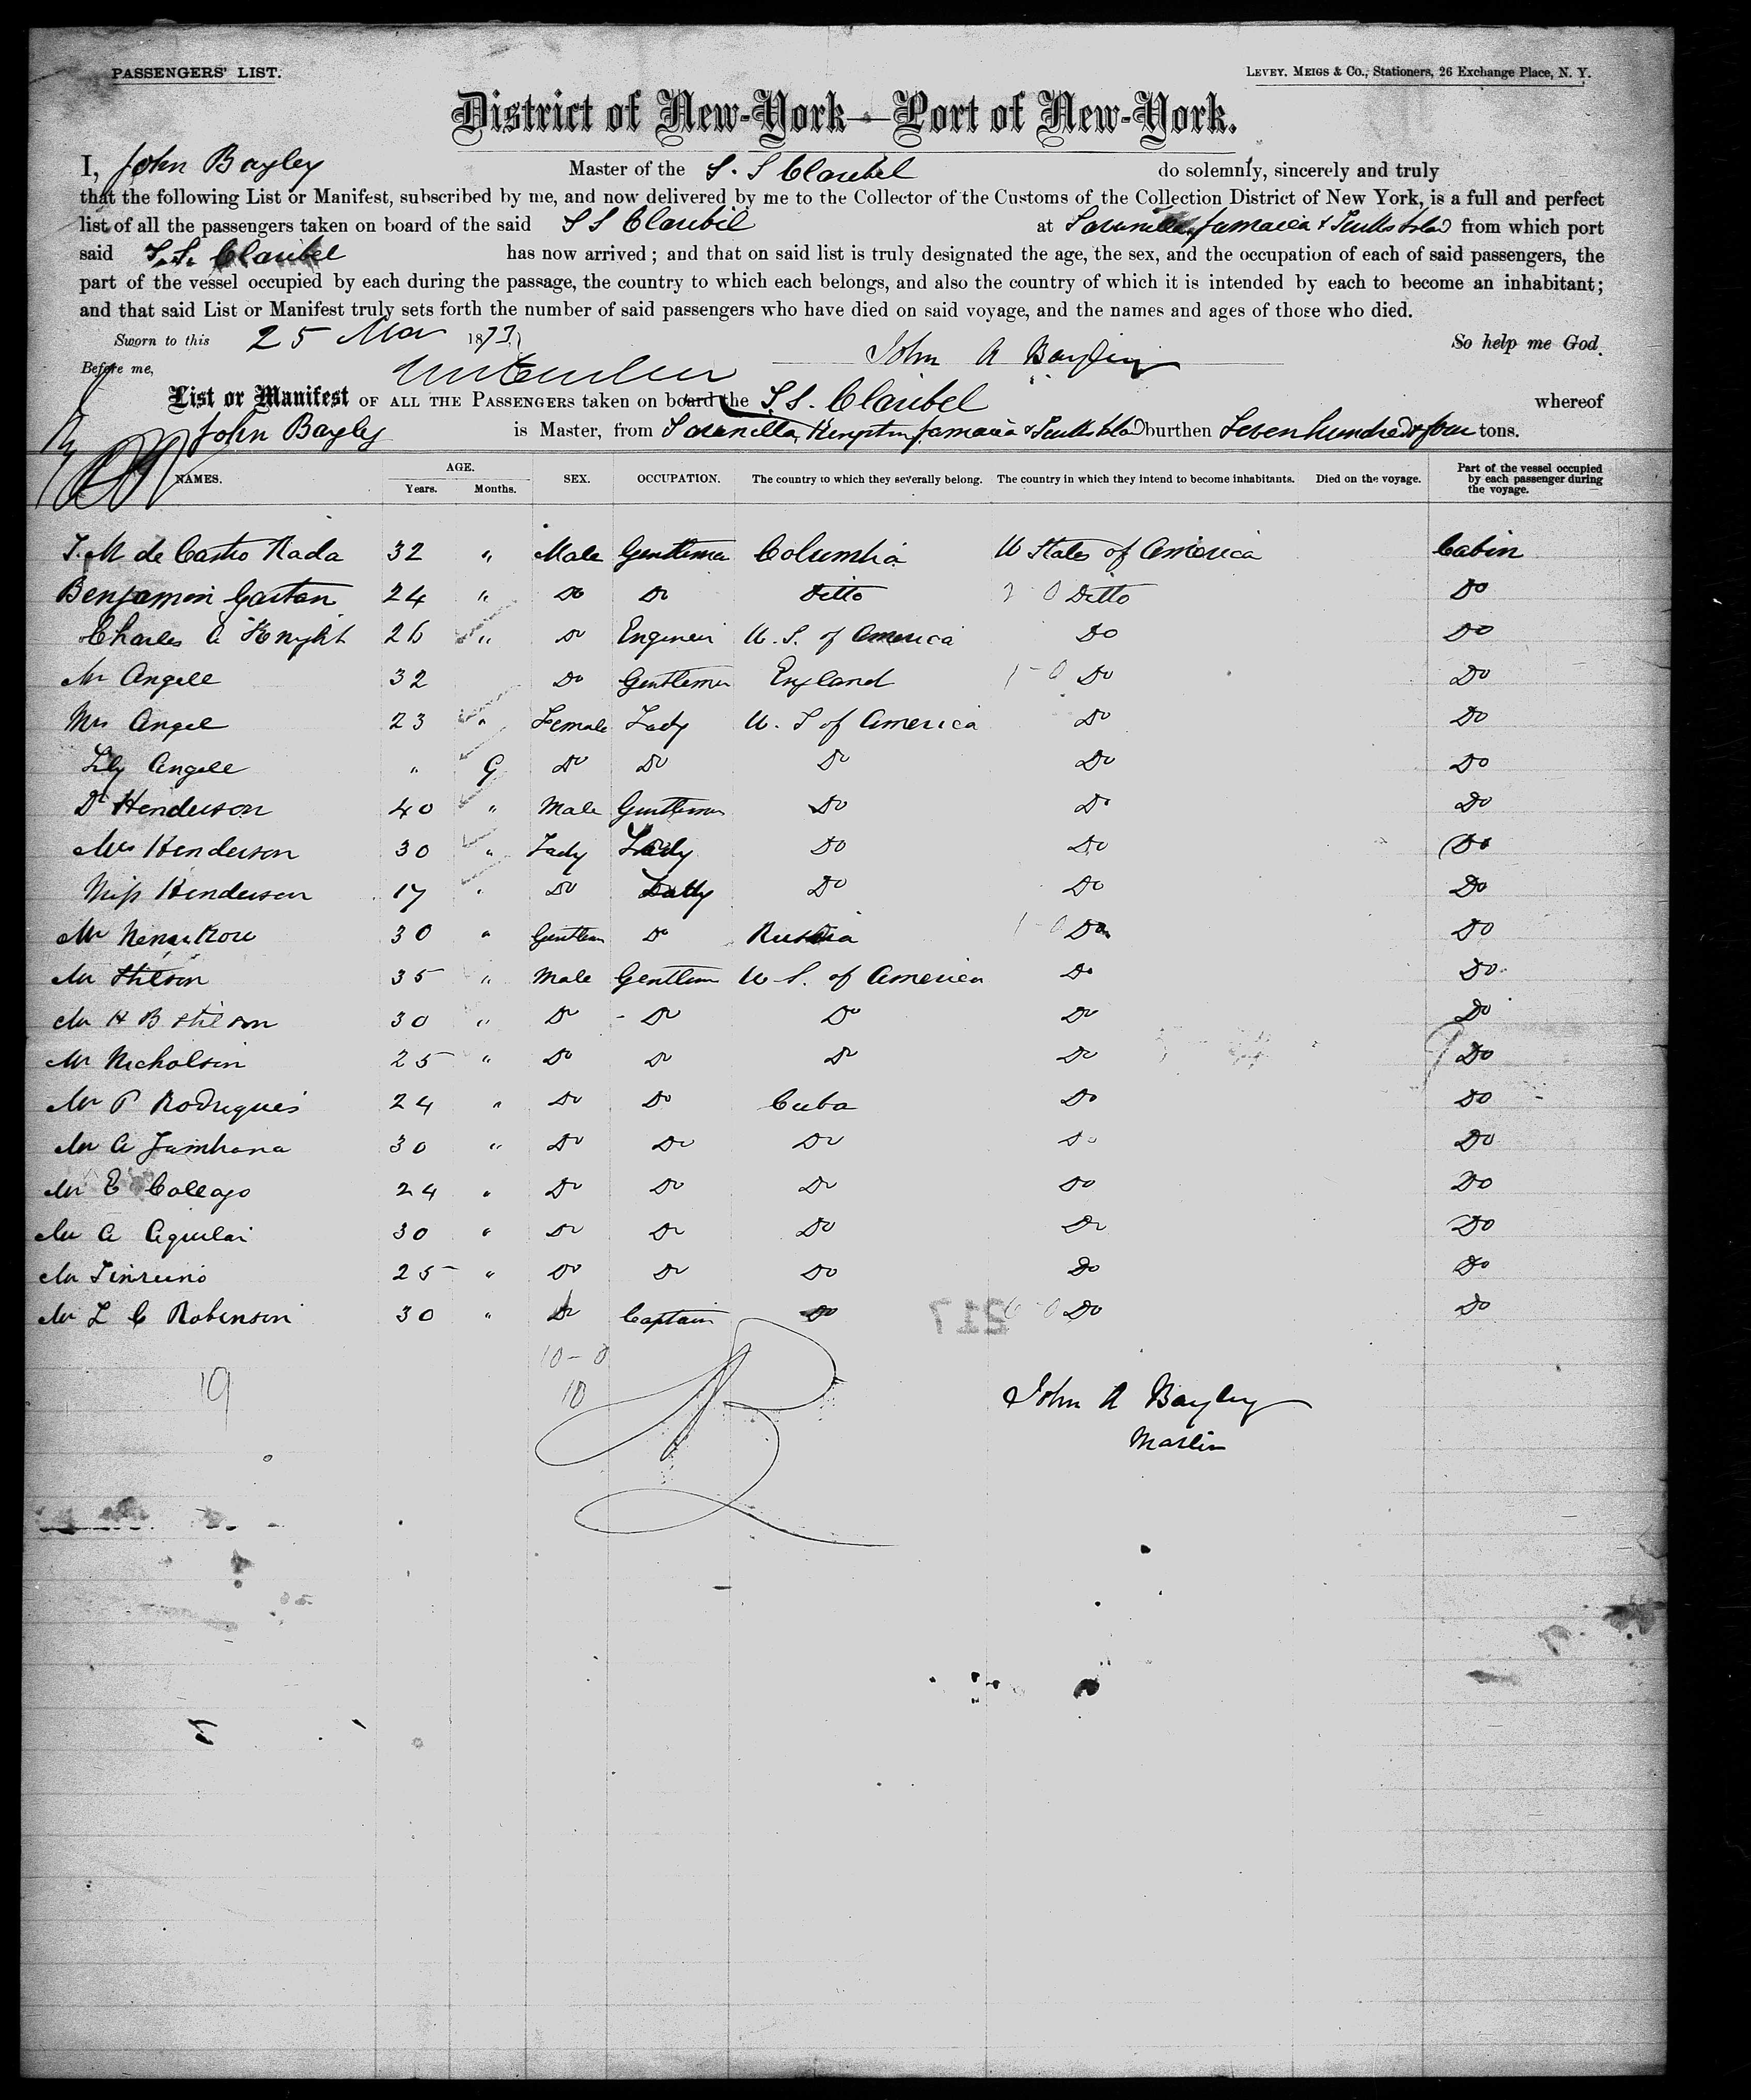 PASSENGERS' LIST.
LEVEY, MEIGS & Co., Stationers, 26 Exchange Place, N. Y.
District of New-York—Port of New-York.
I, John Bayley Master of the S. S Claribel do solemnly, sincerely and truly
that the following List or Manifest, subscribed by me, and now delivered by me to the Collector of the Customs of the Collection District of New York, is a full and perfect
list of all the passengers taken on board of the said S S Claribel at Savanilla, Jamaica & from which port
said S. S. Claribel has now arrived; and that on said list is truly designated the age, the sex, and the occupation of each of said passengers, the
part of the vessel occupied by each during the passage, the country to which each belongs, and also the country of which it is intended by each to become an inhabitant;
and that said List or Manifest truly sets forth the number of said passengers who have died on said voyage, and the names and ages of those who died.
Sworn to this 25 Mar 1873 So help me God.
Before me, John A Bayley
List or Manifest OF ALL THE PASSENGERS taken on board the S.S. Claribel whereof
John Bayley is Master, from Savanilla, Jamaica & burthen Seven hundred & four tons.
NAMES. AGE. Years. Months. SEX. OCCUPATION. The country to which they severally belong. The country in which they intend to become inhabitants. Died on the voyage. Part of the vessel occupied by each passenger during the voyage.
M de Castro Rada 32 " Male Gentleman Columbia U States of America Cabin
Benjamin Gaitan 24 " Do Do Ditto 2-0 Ditto Do
Charles A Knight 26 " Do Engineer U. S. of America Do Do
Mr Angell 32 Do Gentleman England 1-0 Do Do
Mrs Angel 23 " Female Lady U. S of America Do Do
Lily Angell " 9 Do Do Do Do Do
Dr Henderson 40 " Male Gentleman Do Do Do
Mrs Henderson 30 " Lady Lady Do Do Do
Miss Henderson 17 " Do Do Do Do
Mr 30 " Gentleman Do Russia 1-0 Do Do
Mr Stilson 35 " Male Gentleman U S. of America Do Do
Mr H B Stilson 30 " Do Do Do Do Do
Mr Nicholson 25 " Do Do Do Do Do
Mr P Rodrigues 24 " Do Do Cuba Do Do
Mr A 30 " Do Do Do Do Do
Mr E Collazo 24 " Do Do Do Do Do
Mr A Aguilar 30 " Do Do Do Do Do
Mr 25 " Do Do Do Do Do
Mr L C Robinson 30 " Do Captain Do 6-0 Do Do
217
10-0
19 10
John A Bayley
Master